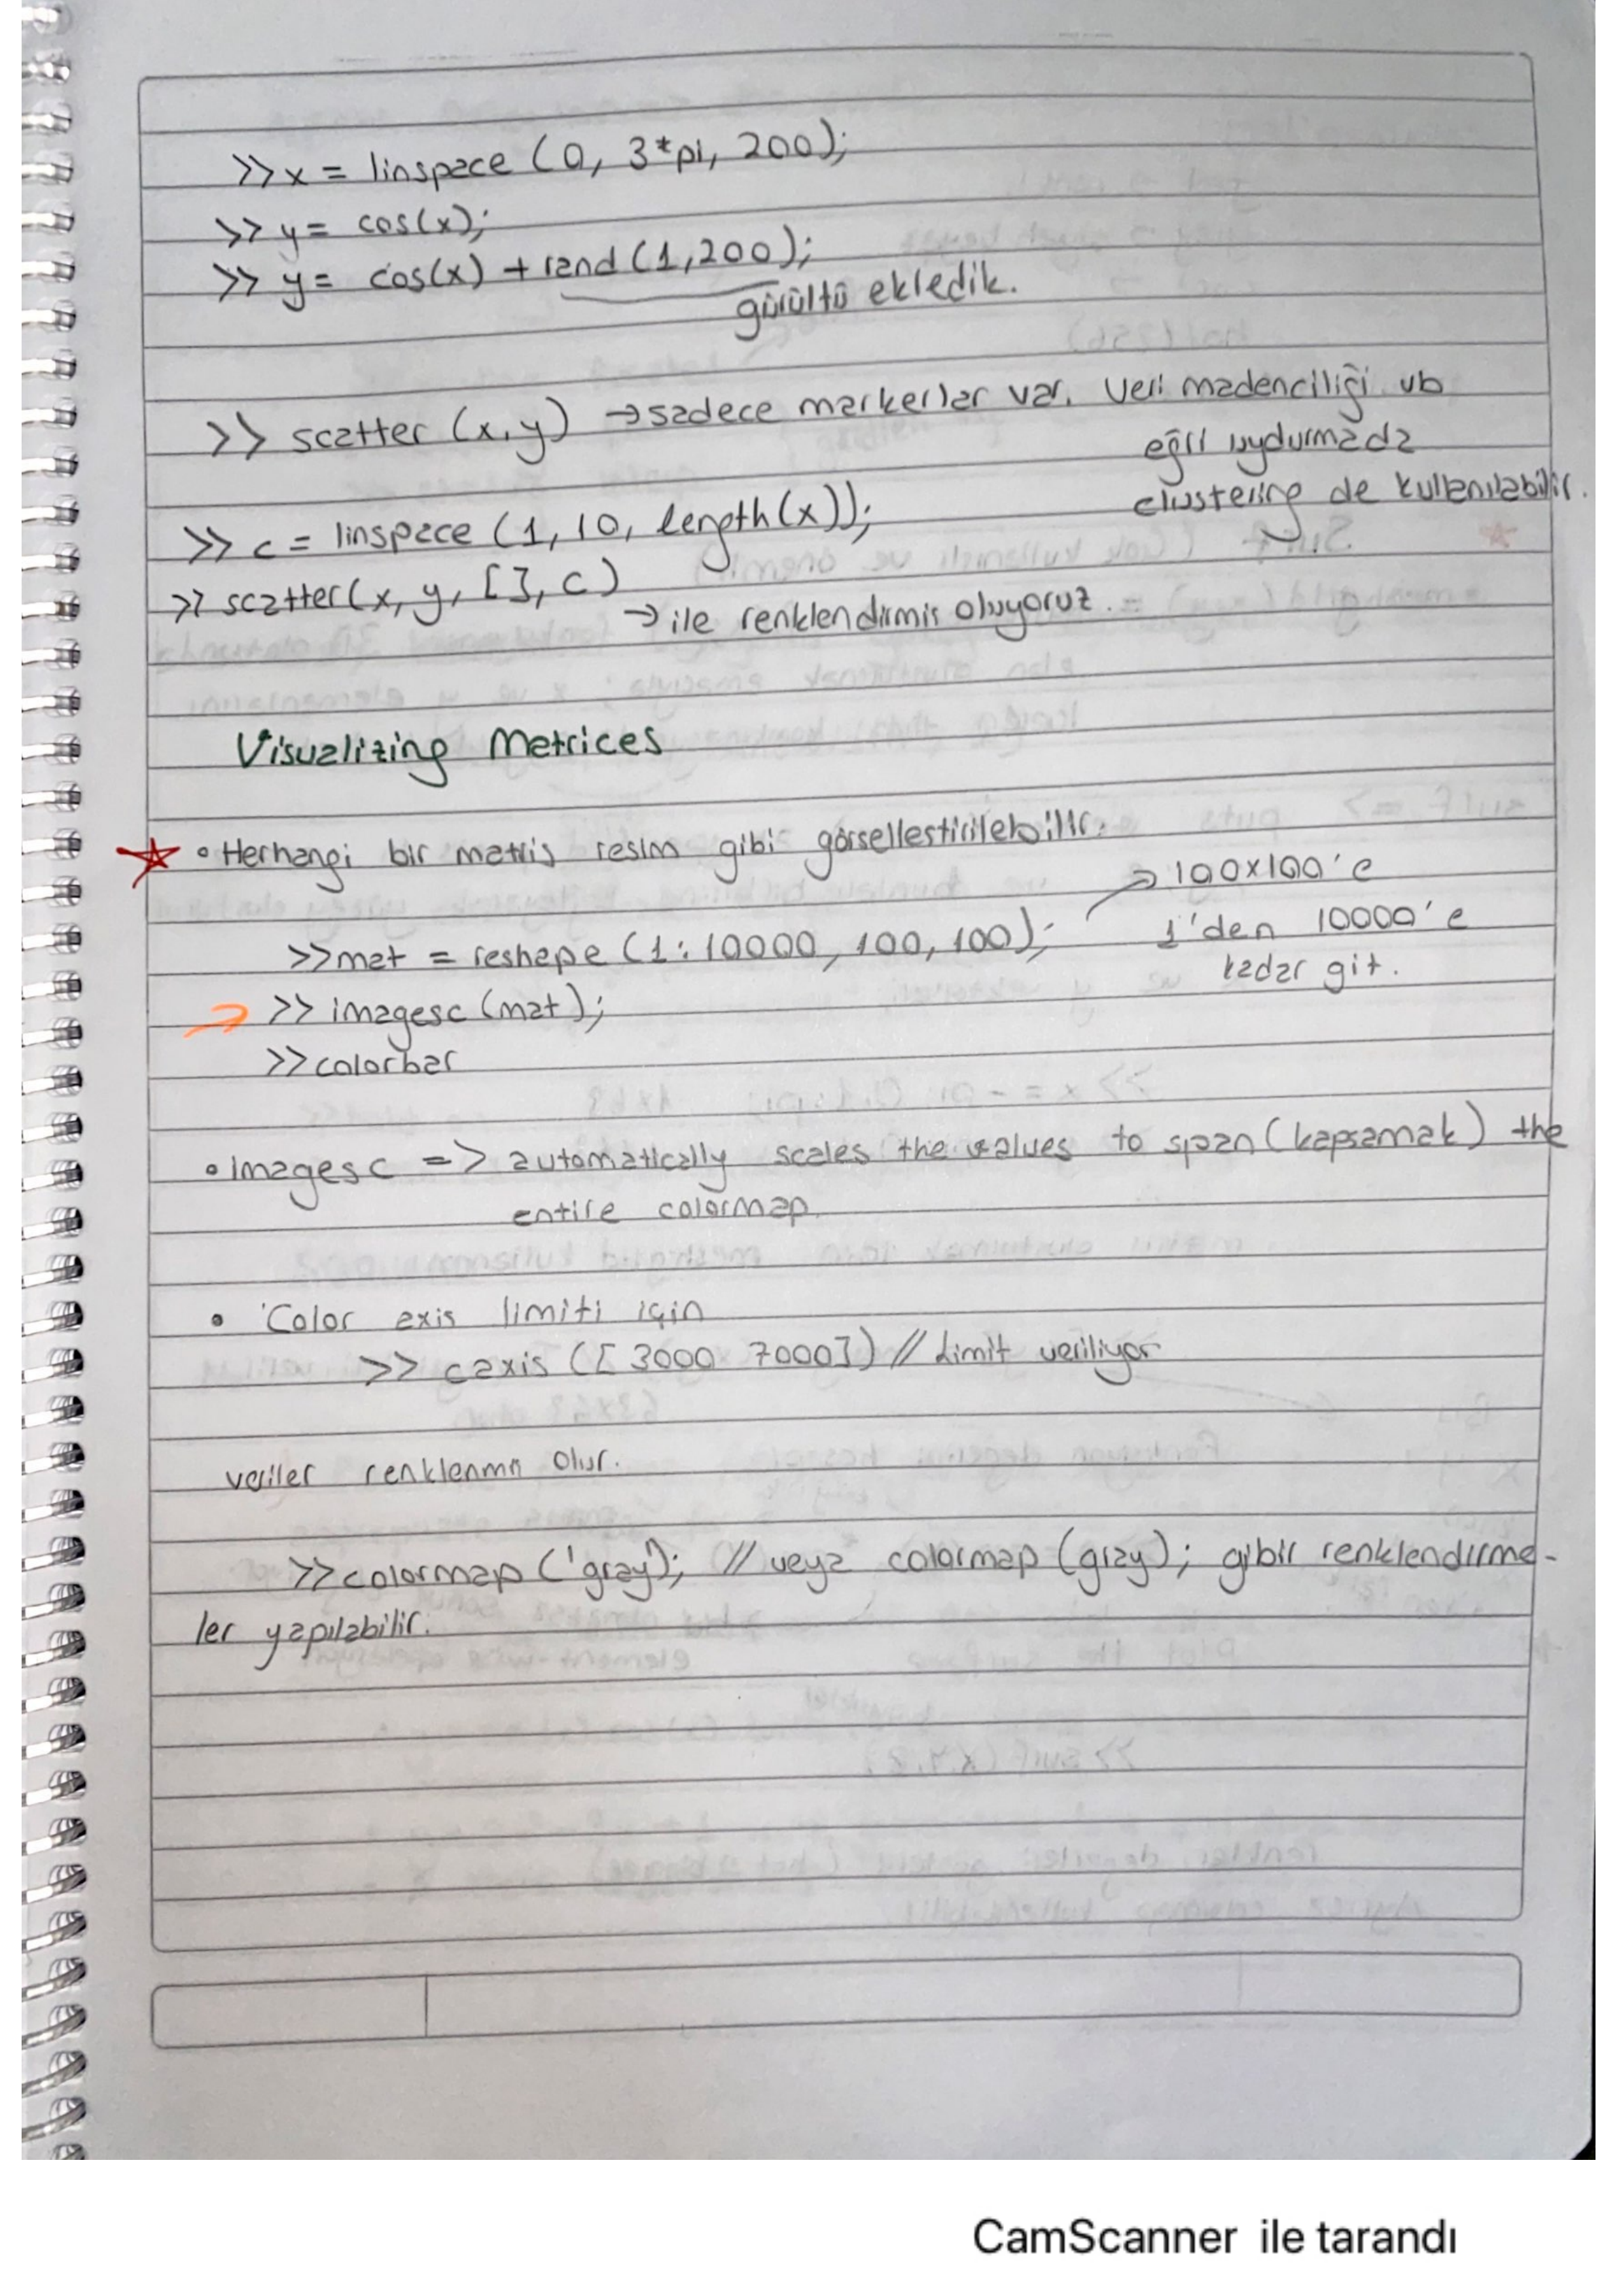 >> x = linspace (0, 3*pi, 200);
>> y = cos(x);
>> y = cos(x) + rand (1,200);
gürültü ekledik.
>> scatter (x,y) → sadece markerlar var. Veri madenciliği vb
eğri uydurmada
clustering de kullanılabilir.
>> c = linspace (1, 10, length(x));
>> scatter(x, y, [], c)
→ ile renklendirmis oluyoruz.
Visualizing Matrices
• Herhangi bir matris resim gibi görsellestirilebilir.
→ 100x100'e
>> mat = reshape (1:10000, 100, 100);
1'den 10000'e
kadar git.
→ >> imagesc (mat);
>> colorbar
• Imagesc => automatically scales the values to span (kapsamak) the
entire colormap.
• Color axis limiti için
>> caxis ([3000 7000]) // Limit veriliyor
veriler renklenmn olur.
>> colormap ('gray'); // veya colormap (gray); gibir renklendirme-
ler yapılabilir.
CamScanner ile tarandı